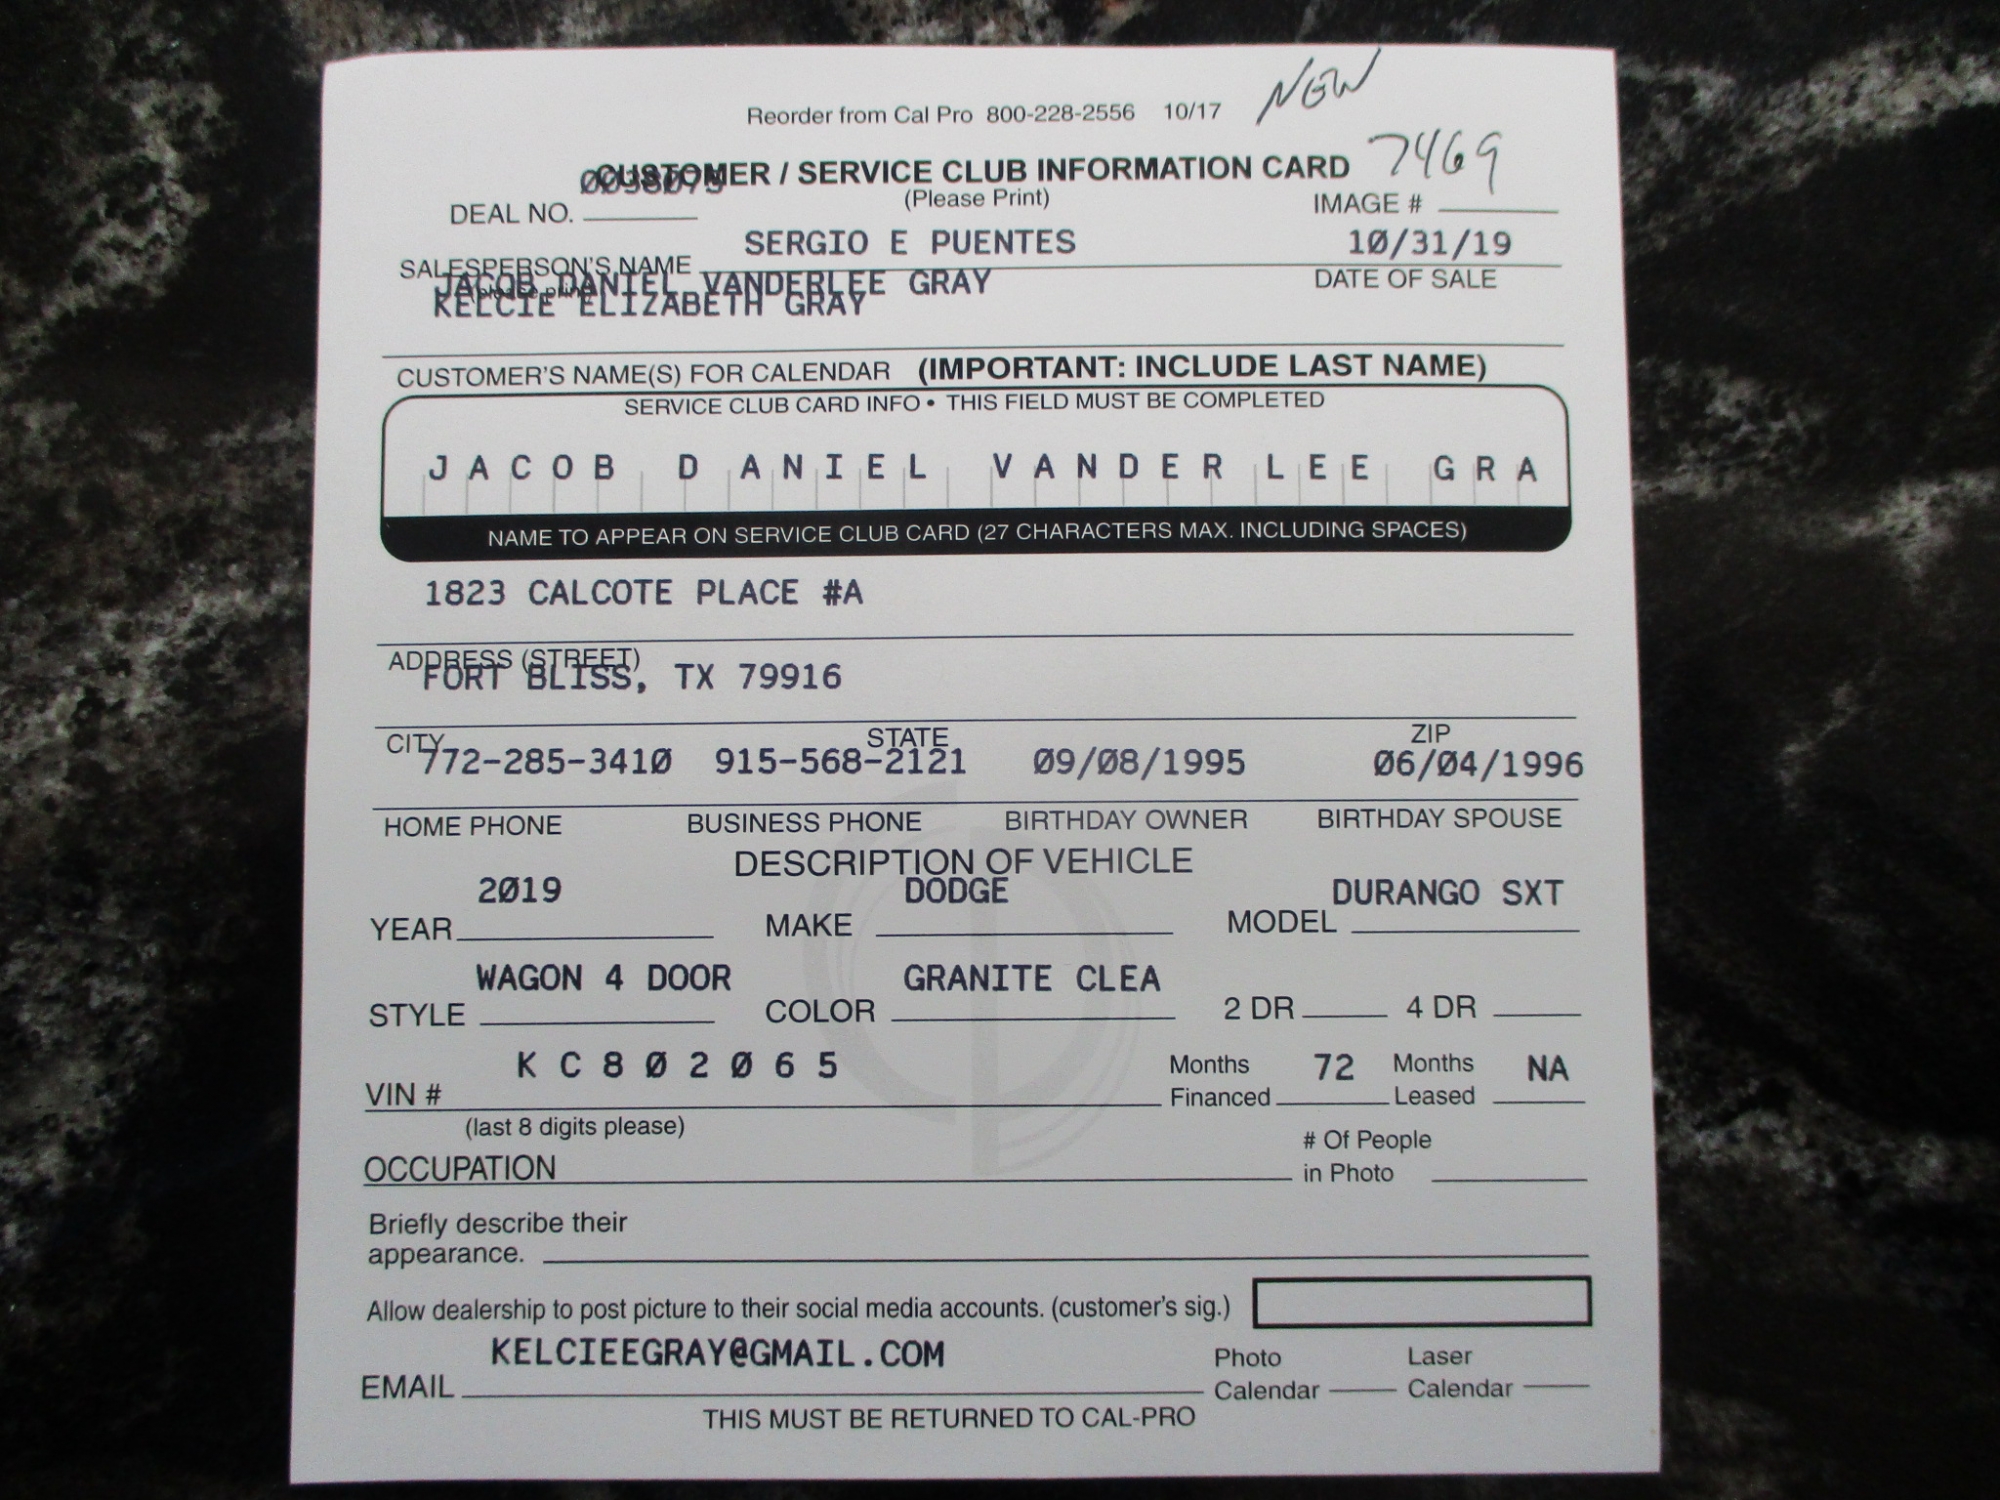 NEW
Reorder from Cal Pro 800-228-2556 10/17
CUSTOMER / SERVICE CLUB INFORMATION CARD 7469
(Please Print)
DEAL NO. IMAGE #
SERGIO E PUENTES 10/31/19
SALESPERSON'S NAME DATE OF SALE
(please print)
JACOB DANIEL VANDERLEE GRAY
KELCIE ELIZABETH GRAY
CUSTOMER'S NAME(S) FOR CALENDAR (IMPORTANT: INCLUDE LAST NAME)
SERVICE CLUB CARD INFO • THIS FIELD MUST BE COMPLETED
JACOB DANIEL VANDERLEE GRA
NAME TO APPEAR ON SERVICE CLUB CARD (27 CHARACTERS MAX. INCLUDING SPACES)
1823 CALCOTE PLACE #A
ADDRESS (STREET)
FORT BLISS, TX 79916
CITY STATE ZIP
772-285-3410 915-568-2121 09/08/1995 06/04/1996
HOME PHONE BUSINESS PHONE BIRTHDAY OWNER BIRTHDAY SPOUSE
DESCRIPTION OF VEHICLE
2019 DODGE DURANGO SXT
YEAR MAKE MODEL
WAGON 4 DOOR GRANITE CLEA
STYLE COLOR 2 DR 4 DR
KC802065 Months 72 Months NA
VIN # Financed Leased
(last 8 digits please)
OCCUPATION # Of People
in Photo
Briefly describe their
appearance.
Allow dealership to post picture to their social media accounts. (customer's sig.)
KELCIEEGRAY@GMAIL.COM Photo Laser
EMAIL Calendar Calendar
THIS MUST BE RETURNED TO CAL-PRO